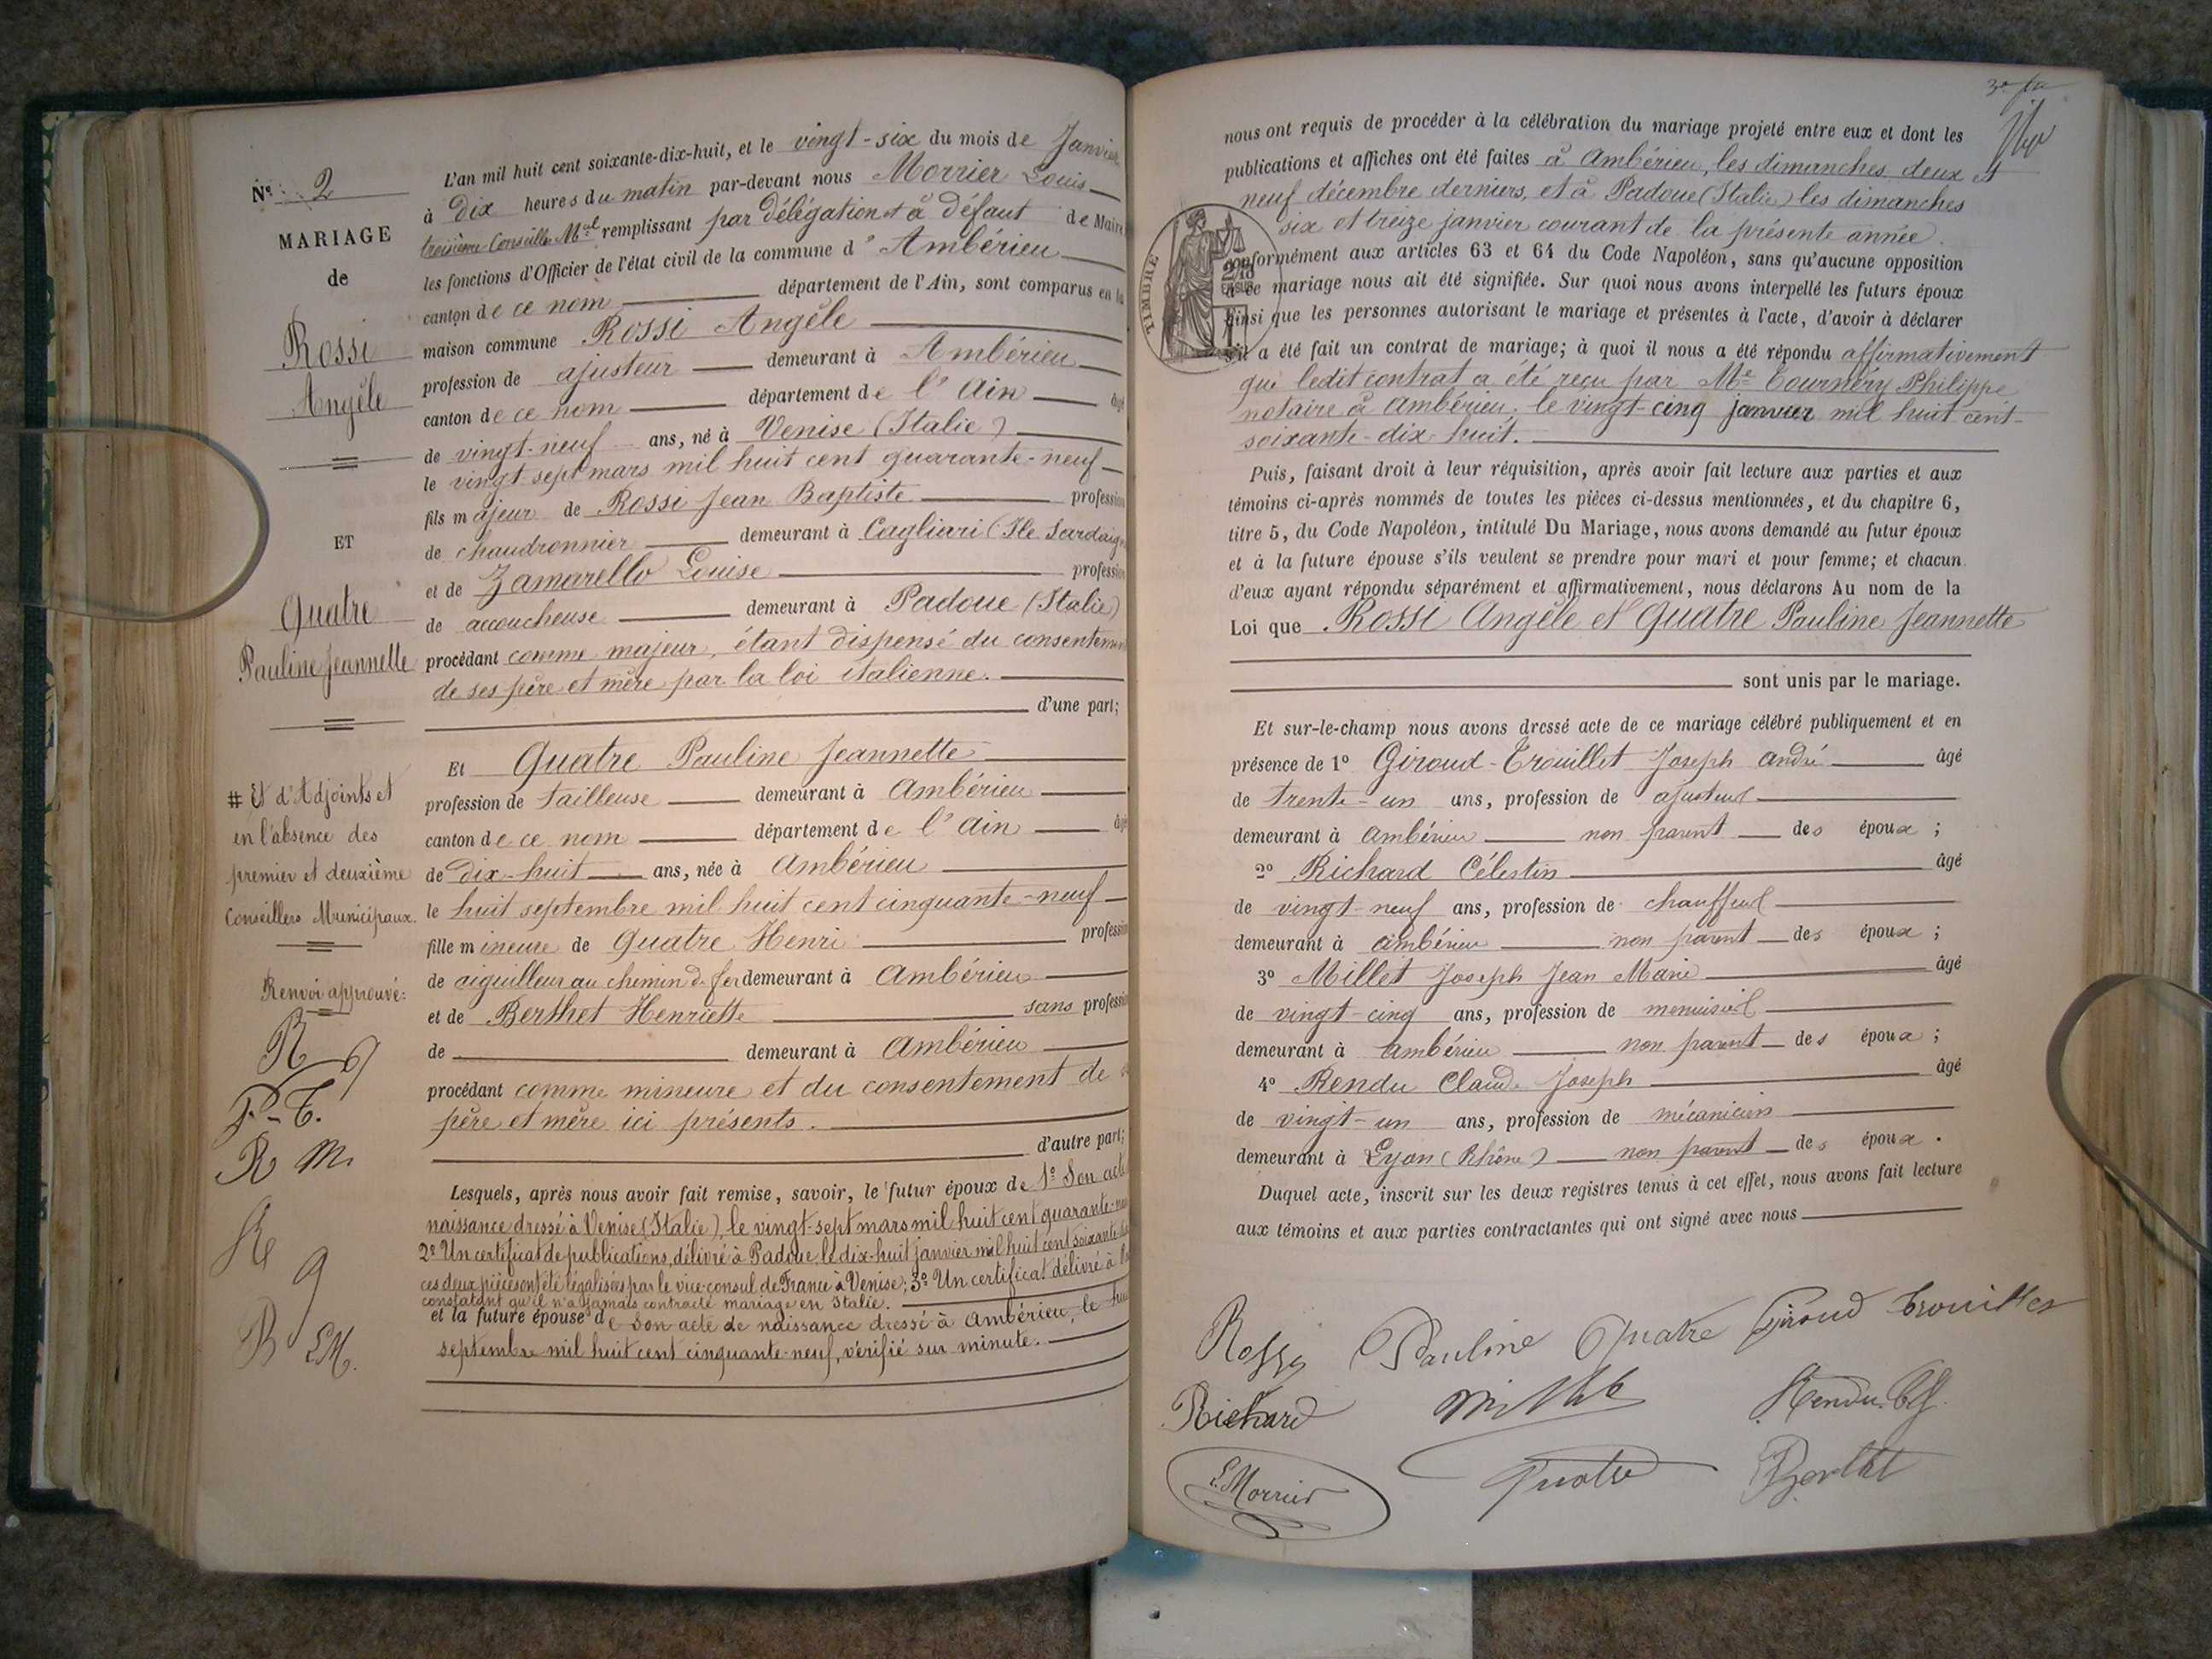 N° 2
MARIAGE
de
Rossi
Angèle
ET
Quatre
Pauline Jeannette
# Et d'Adjoints et
en l'absence des
premier et deuxième
Conseillers Municipaux.
Renvoi approuvé:
R
P-T.
R M.
R
B LM.
L'an mil huit cent soixante-dix-huit, et le vingt-six du mois de Janvier
à Dix heures du matin par-devant nous Morrier Louis
troisième Conseiller Mal remplissant par délégation # à défaut de Maire
les fonctions d'Officier de l'état civil de la commune d'Ambérieu
canton de ce nom département de l'Ain, sont comparus en la
maison commune Rossi Angèle
profession de ajusteur demeurant à Ambérieu
canton de ce nom département de l'Ain âgé
de vingt-neuf ans, né à Venise (Italie)
le vingt sept mars mil huit cent quarante-neuf
fils majeur de Rossi Jean Baptiste profession
de chaudronnier demeurant à Cagliari (Ile Sardaigne
et de Zamarello Louise profession
de accoucheuse demeurant à Padoue (Italie)
procédant comme majeur, étant dispensé du consentement
de ses père et mère par la loi italienne.
d'une part;
Et Quatre Pauline Jeannette
profession de tailleuse demeurant à Ambérieu
canton de ce nom département de l'Ain âgé
de dix-huit ans, née à Ambérieu
le huit septembre mil huit cent cinquante-neuf
fille mineure de Quatre Henri profession
de aiguilleur au chemin d. fer demeurant à Ambérieu
et de Berthet Henriette sans profession
de demeurant à Ambérieu
procédant comme mineure et du consentement de
père et mère ici présents.
d'autre part;
Lesquels, après nous avoir fait remise, savoir, le futur époux de 1° Son acte
naissance dressé à Venise (Italie), le vingt-sept mars mil huit cent quarante-neuf
2° Un certificat de publications, délivré à Padoue, le dix-huit janvier mil huit cent soixante
ces deux pièces ont été légalisées par le vice-consul de France à Venise; 3° Un certificat délivré à
constatant qu'il n'a jamais contracté mariage en Italie.
et la future épouse de son acte de naissance dressé à Ambérieu, le huit
septembre mil huit cent cinquante-neuf, vérifié sur minute.
nous ont requis de procéder à la célébration du mariage projeté entre eux et dont les
publications et affiches ont été faites à Ambérieu, les dimanches deux et
neuf décembre derniers, et à Padoue (Italie) les dimanches
six et treize janvier courant de la présente année.
TIMBRE
conformément aux articles 63 et 64 du Code Napoléon, sans qu'aucune opposition
à ce mariage nous ait été signifiée. Sur quoi nous avons interpellé les futurs époux
ainsi que les personnes autorisant le mariage et présentes à l'acte, d'avoir à déclarer
s'il a été fait un contrat de mariage; à quoi il nous a été répondu affirmativement
que ledit contrat a été reçu par Me Tournéry Philippe
notaire à Ambérieu, le vingt-cinq janvier mil huit cent-
soixante-dix-huit.
Puis, faisant droit à leur réquisition, après avoir fait lecture aux parties et aux
témoins ci-après nommés de toutes les pièces ci-dessus mentionnées, et du chapitre 6,
titre 5, du Code Napoléon, intitulé Du Mariage, nous avons demandé au futur époux
et à la future épouse s'ils veulent se prendre pour mari et pour femme; et chacun
d'eux ayant répondu séparément et affirmativement, nous déclarons Au nom de la
Loi que Rossi Angèle et Quatre Pauline Jeannette
sont unis par le mariage.
Et sur-le-champ nous avons dressé acte de ce mariage célébré publiquement et en
présence de 1° Giroud-Trouillet Joseph André âgé
de trente-un ans, profession de ajusteur
demeurant à Ambérieu non parent des époux ;
2° Richard Célestin âgé
de vingt-neuf ans, profession de chauffeur
demeurant à Ambérieu non parent des époux ;
3° Millet Joseph Jean Marie âgé
de vingt-cinq ans, profession de menuisier
demeurant à Ambérieu non parent des époux ;
4° Rendu Claude Joseph âgé
de vingt-un ans, profession de mécanicien
demeurant à Lyon (Rhône) non parent des époux .
Duquel acte, inscrit sur les deux registres tenus à cet effet, nous avons fait lecture
aux témoins et aux parties contractantes qui ont signé avec nous
Rossi Pauline Quatre Giroud Trouillet
Richard Millet Rendu
L. Morrier Quatre Berthet